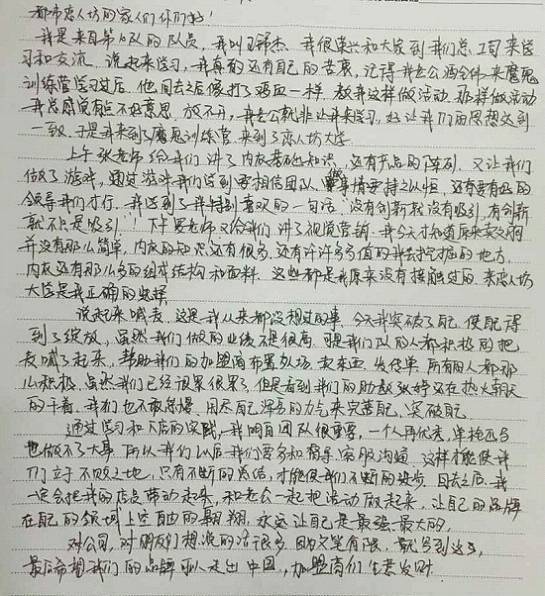 都市恋人坊的家人们你们好!
我是来自第10队的队员,我叫王锦杰,我很荣兴和大家到我们总公司来学
习和交流。说起来学习,我真的还有自己的苦衷,记得我老公酒全伟来魔鬼
训练营学习过后,他回去之后像打了鸡血一样,教我这样做活动,那样做活动
我总感觉有点不好意思,放不开,我老公就非让我来学习,好让我们的思想达到
一致,于是我来到了魔鬼训练营,来到了恋人坊大学。
上午张老师给我们讲了内衣基础知识,还有产品的陈列。又让我们
做了游戏,通过游戏我们学到要相信团队,做事情要持之以恒,还要要有好的
领导我们才行。我学到了我特别喜欢的一句话"没有创新就没有吸引,有创新
就不只是吸引!"下午罗老师又给我们讲了视觉营销,我今天才知道原来卖文胸
并没有那么简单,内衣的知识还有很多,还有许许多多值的我去挖掘的地方。
内衣还有那么多的组成结构和面料。这些都是我原来没有接触过的,来恋人坊
大学是我正确的选择。
说起来喊麦,这是我从来都没想过的事,今天我突破了自己,使自己得
到了绽放,虽然我们做的业绩不是很高,可是我们队的人都积极的把
麦喊了起来,帮助我们的加盟商布置外场,卖东西,发传单,所有的人都那
么积极,虽然我们已经很累很累了,但是看到我们的助教张婷还在热火朝天
的干着,我们也不敢怠慢,用尽自己浑身的力气来完善自己,突破自己。
通过学习和下店的实践,我明白团队很重要,一个人再优秀,单枪匹马
也做不了大事,所以我们以后我们要多和领导、客服沟通,这样才能使我
们立于不败之地,只有不断的总结,才能使我们不断的进步,回去之后,我
一定会把我的店员带动起来,和老公一起把活动做起来,让自己的品牌
在自己的领域上空自由的翱翔,永远让自己是最强最大的。
对公司,对朋友们想说的话很多,因文笔有限,就写到这里,
最后希望我们的品牌可以走出中国,加盟商们生意发财。